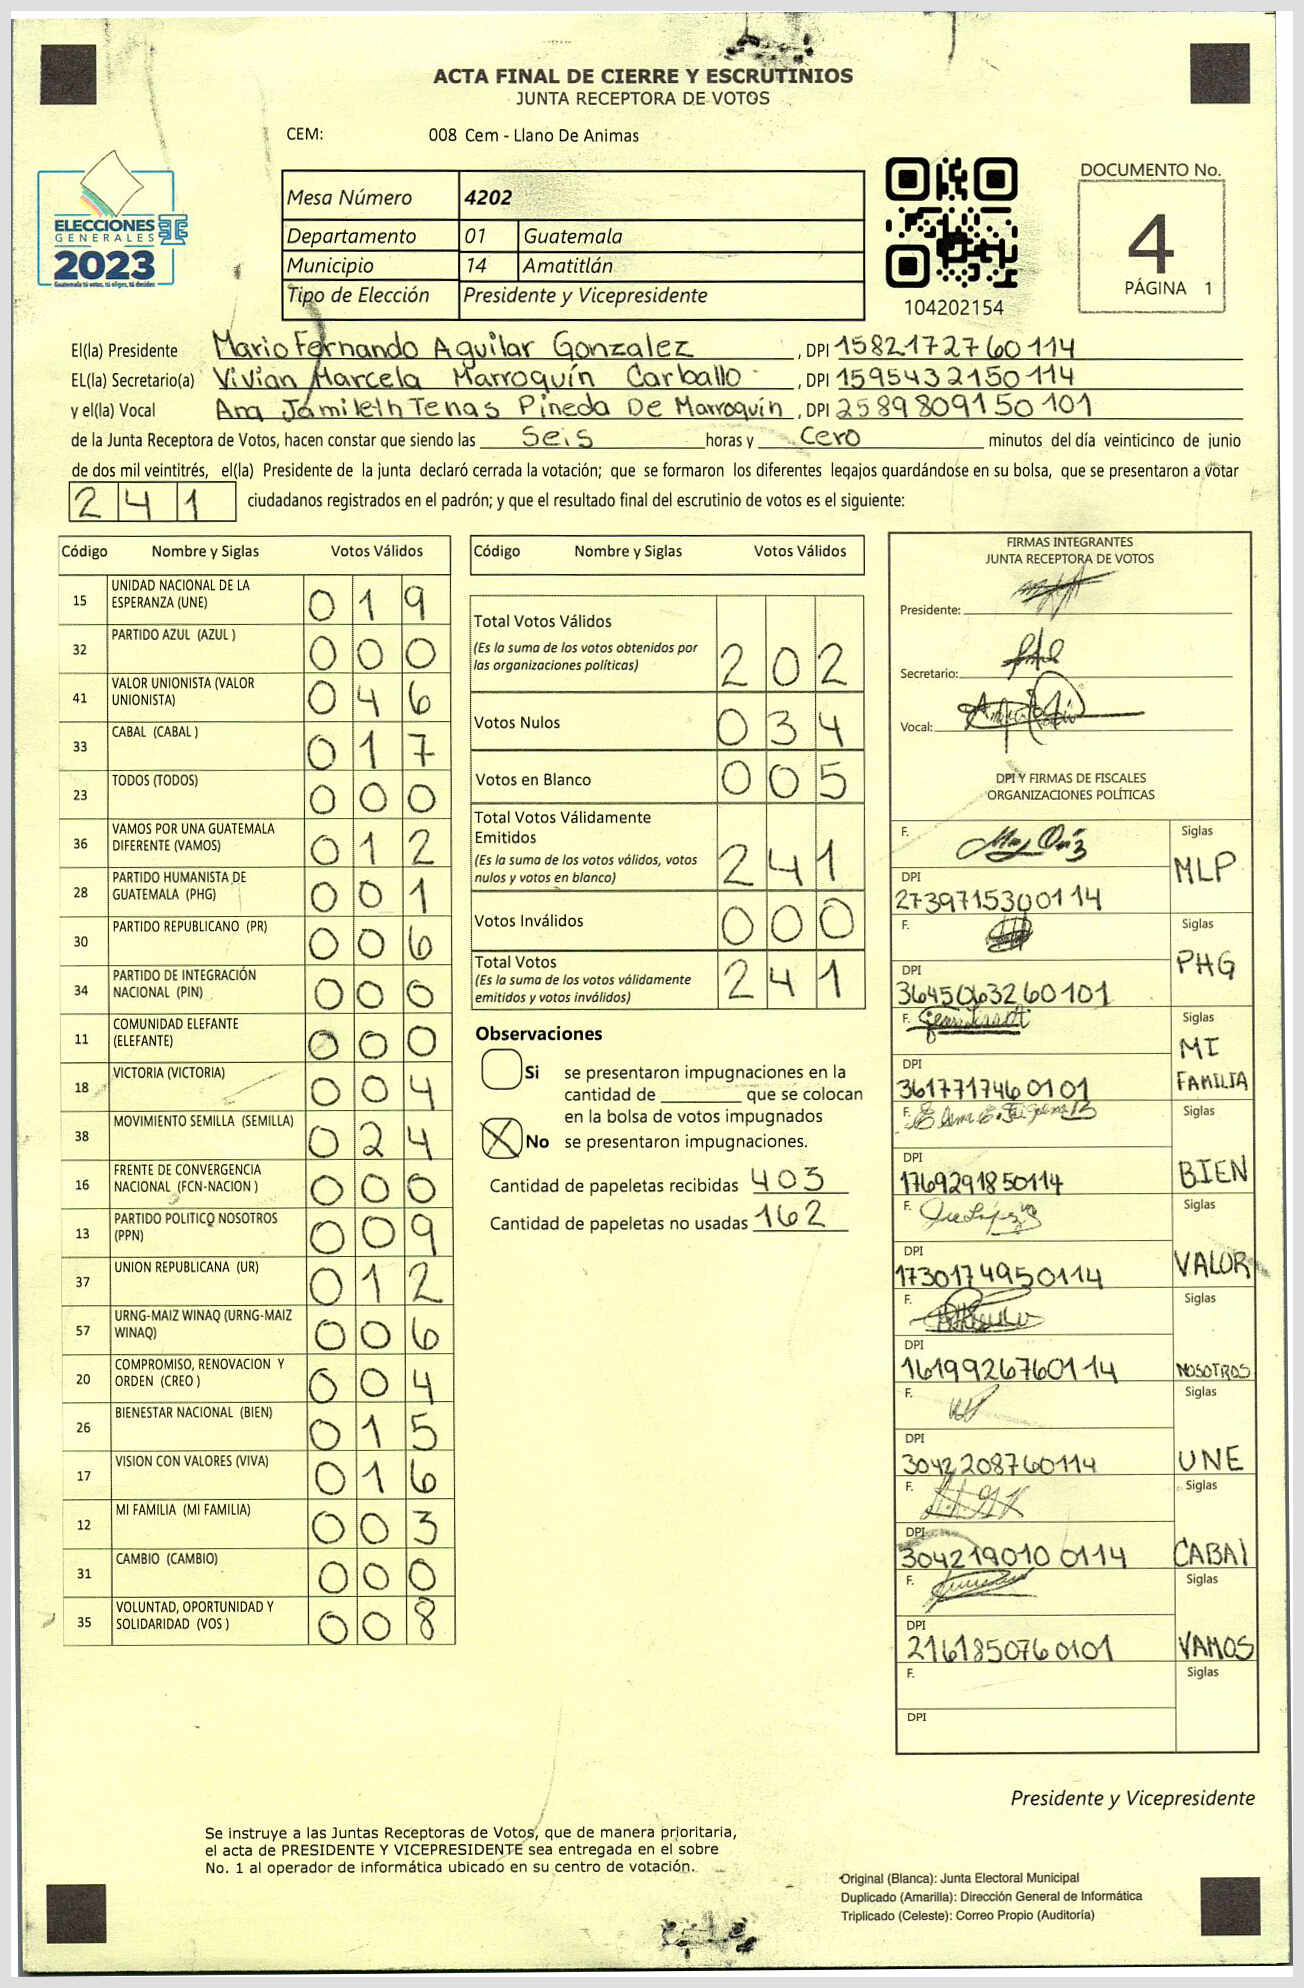 ACTA FINAL DE CIERRE Y ESCRUTINIOS
JUNTA RECEPTORA DE VOTOS
CEM: 008 Cem - Llano De Animas
ELECCIONES
GENERALES
2023
Guatemala tú votas, tú eliges, tú decides
Mesa Número 4202
Departamento 01 Guatemala
Municipio 14 Amatitlán
Tipo de Elección Presidente y Vicepresidente
104202154
DOCUMENTO No.
4
PÁGINA 1
El(la) Presidente Mario Fernando Aguilar Gonzalez , DPI 1582172760114
EL(la) Secretario(a) Vivian Marcela Marroquín Carballo , DPI 1595432150114
y el(la) Vocal Ana Jamileth Tenas Pineda De Marroquín , DPI 2589809150101
de la Junta Receptora de Votos, hacen constar que siendo las Seis horas y Cero minutos del día veinticinco de junio
de dos mil veintitrés, el(la) Presidente de la junta declaró cerrada la votación; que se formaron los diferentes legajos guardándose en su bolsa, que se presentaron a votar
241 ciudadanos registrados en el padrón; y que el resultado final del escrutinio de votos es el siguiente:
Código Nombre y Siglas Votos Válidos
15 UNIDAD NACIONAL DE LA ESPERANZA (UNE) 019
32 PARTIDO AZUL (AZUL ) 000
41 VALOR UNIONISTA (VALOR UNIONISTA) 046
33 CABAL (CABAL ) 017
23 TODOS (TODOS) 000
36 VAMOS POR UNA GUATEMALA DIFERENTE (VAMOS) 012
28 PARTIDO HUMANISTA DE GUATEMALA (PHG) 001
30 PARTIDO REPUBLICANO (PR) 006
34 PARTIDO DE INTEGRACIÓN NACIONAL (PIN) 000
11 COMUNIDAD ELEFANTE (ELEFANTE) 000
18 VICTORIA (VICTORIA) 004
38 MOVIMIENTO SEMILLA (SEMILLA) 024
16 FRENTE DE CONVERGENCIA NACIONAL (FCN-NACION ) 000
13 PARTIDO POLITICO NOSOTROS (PPN) 009
37 UNION REPUBLICANA (UR) 012
57 URNG-MAIZ WINAQ (URNG-MAIZ WINAQ) 006
20 COMPROMISO, RENOVACION Y ORDEN (CREO ) 004
26 BIENESTAR NACIONAL (BIEN) 015
17 VISION CON VALORES (VIVA) 016
12 MI FAMILIA (MI FAMILIA) 003
31 CAMBIO (CAMBIO) 000
35 VOLUNTAD, OPORTUNIDAD Y SOLIDARIDAD (VOS ) 008
Código Nombre y Siglas Votos Válidos
Total Votos Válidos 202
(Es la suma de los votos obtenidos por
las organizaciones políticas)
Votos Nulos 034
Votos en Blanco 005
Total Votos Válidamente
Emitidos 241
(Es la suma de los votos válidos, votos
nulos y votos en blanco)
Votos Inválidos 000
Total Votos 241
(Es la suma de los votos válidamente
emitidos y votos inválidos)
Observaciones
Si se presentaron impugnaciones en la
cantidad de ________ que se colocan
en la bolsa de votos impugnados
X No se presentaron impugnaciones.
Cantidad de papeletas recibidas 403
Cantidad de papeletas no usadas 162
FIRMAS INTEGRANTES
JUNTA RECEPTORA DE VOTOS
Presidente:
Secretario:
Vocal:
DPI Y FIRMAS DE FISCALES
ORGANIZACIONES POLÍTICAS
F. Siglas
MLP
DPI
2739715300114
F. Siglas
PHG
DPI
3645063260101
F. Siglas
MI
FAMILIA
DPI
3617717460101
F. Siglas
BIEN
DPI
1769291850114
F. Siglas
VALOR
DPI
1730174950114
F. Siglas
NOSOTROS
DPI
1619926760114
F. Siglas
UNE
DPI
3042208760114
F. Siglas
CABAl
DPI
3042190100114
F. Siglas
VAMOS
DPI
2161850760101
F. Siglas
DPI
Presidente y Vicepresidente
Se instruye a las Juntas Receptoras de Votos, que de manera prioritaria,
el acta de PRESIDENTE Y VICEPRESIDENTE sea entregada en el sobre
No. 1 al operador de informática ubicado en su centro de votación.
Original (Blanca): Junta Electoral Municipal
Duplicado (Amarilla): Dirección General de Informática
Triplicado (Celeste): Correo Propio (Auditoría)